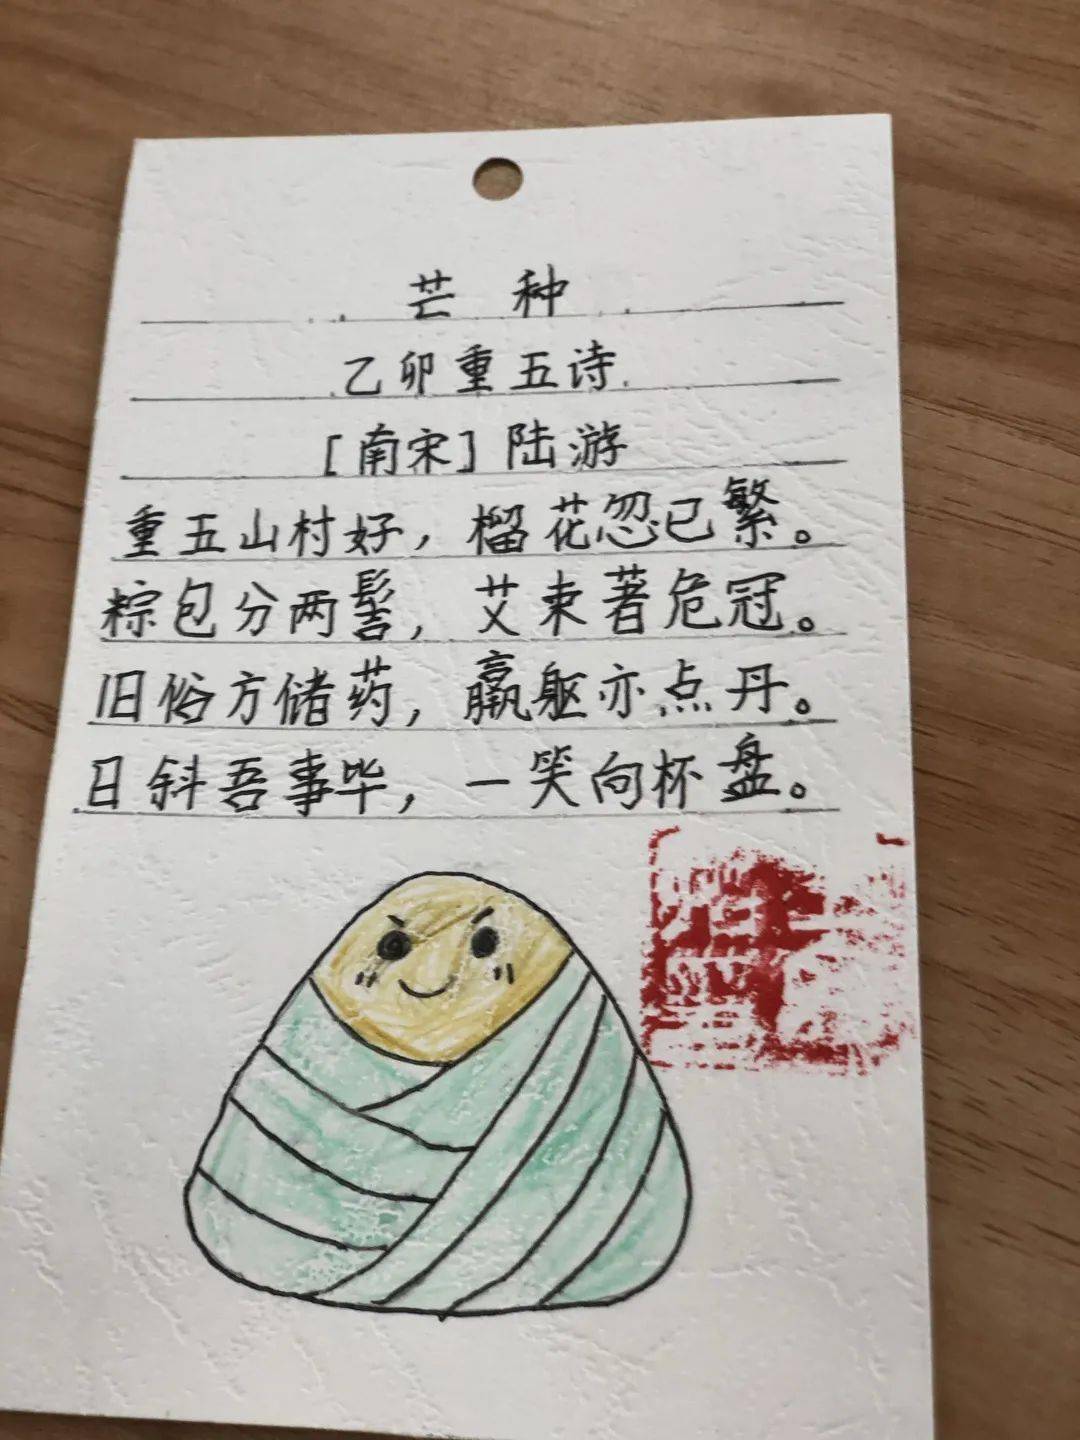 芒 种
乙卯重五诗
[南宋]陆游
重五山村好，榴花忽已繁。
粽包分两髻，艾束著危冠。
旧俗方储药，羸躯亦点丹。
日斜吾事毕，一笑向杯盘。